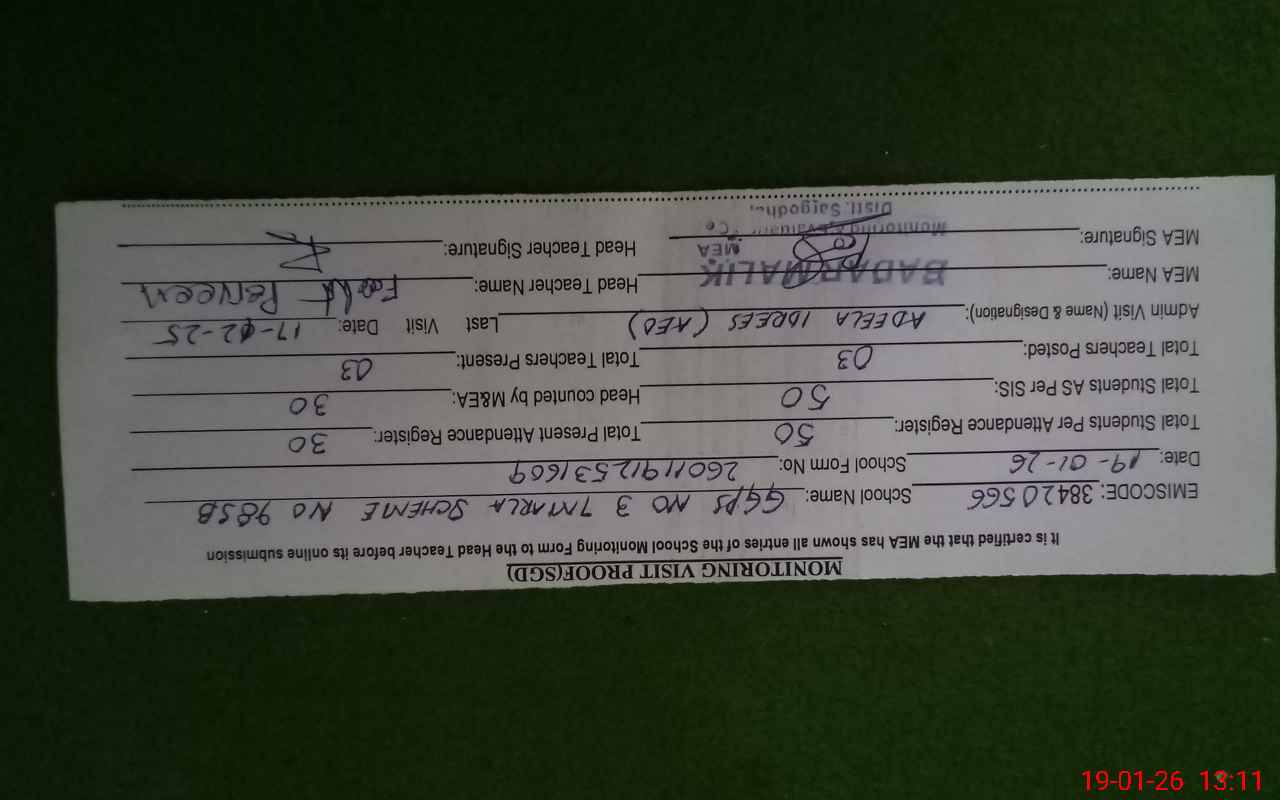 MONITORING VISIT PROOF(SGD)
It is certified that the MEA has shown all entries of the School Monitoring Form to the Head Teacher before its online submission
EMISCODE: 38420566 School Name: GGPS NO 3 7MARLA SCHEME NO 98SB
Date: 19-01-26 School Form No: 26011912531609
Total Students Per Attendance Register: 50 Total Present Attendance Register: 30
Total Students AS Per SIS: 50 Head counted by M&EA: 30
Total Teachers Posted: 03 Total Teachers Present: 03
Admin Visit (Name & Designation): ADEELA IDREES (AEO) Last Visit Date: 17-12-25
MEA Name: BADAR MALIK Head Teacher Name: Perveen
MEA Signature: MEA Head Teacher Signature:
Monitoring &
Distt. Sargodha.
19-01-26 13:11